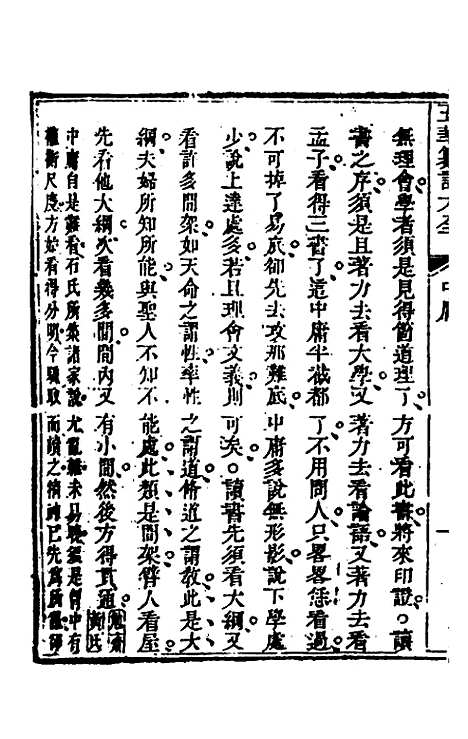 無理會學者須是見得箇道理了方可看此書將來印證。讀
書之序須是且著力去看大學又著力去看論語又著力去看
孟子看得三書了這中庸半截都了不用問人只畧畧恁看過
不可掉了易底卻先去攻那難底中庸多說無形影說下學處
少說上達處多若且理會文義則可矣。讀書先須看大綱又
看許多間架如天命之謂性率性之謂道脩道之謂教此是大
綱夫婦所知所能與聖人不知不能處此類是間架譬人看屋
先看他大綱次看幾多間間內又有小間然後方得貫通
中庸自是難看石氏所集諸家說尤亂雜未易曉須是胷中有
權衡尺度方始看得分明今驟取而讀之精神已先為所亂
五華纂訂大全 中庸